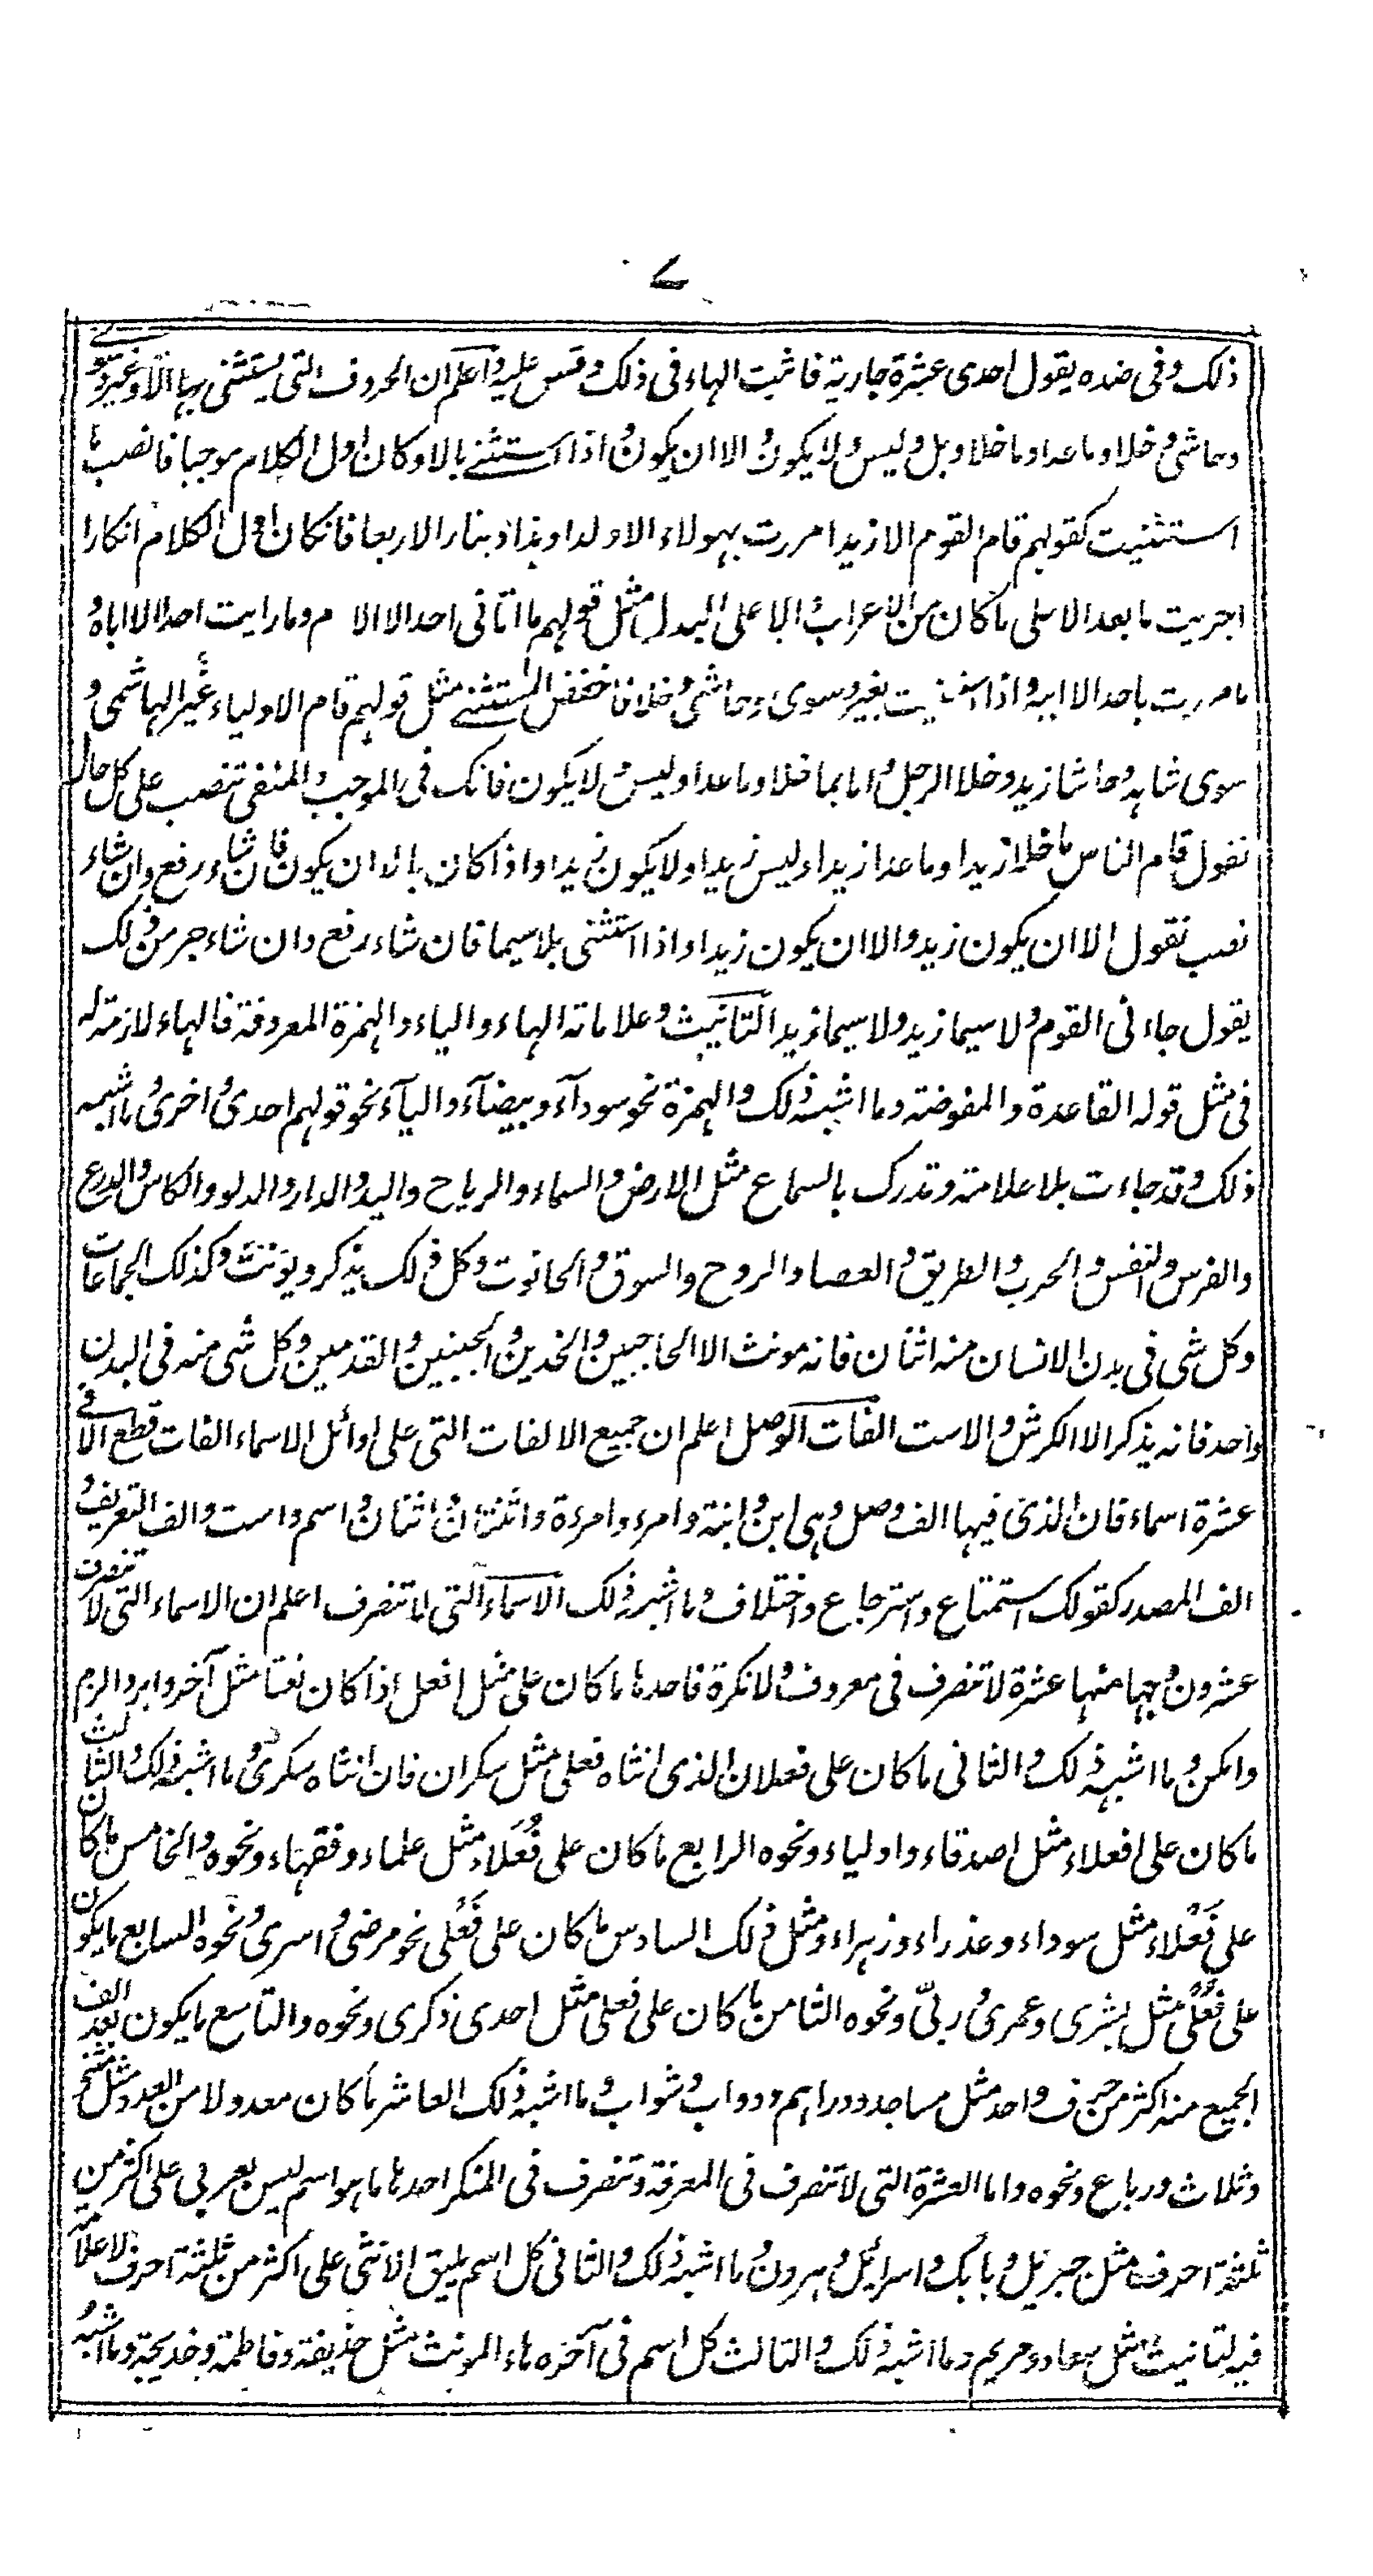 ٧
ذلك وفى ضده يقول احدى عشرة جارية فاثبت الهاء فى ذلك وقس عليه واعلم ان الحروف التى يستثنى بها الا وغير وسوى
وحاشى وخلا وما عدا وما خلا وبل وليس ولا يكون الا ان يكون اذا استثنے بالا وكان اول الكلام موجبا فانصب ما
استثنيت كقولهم قام القوم الا زيدا مررت بهولاء الا ولدا وبذا وبنا را الا ربعا فانكان اول الكلام انكارا
اجريت ما بعد الا على ما كان من الاعراب الا على البدل مثل قولهم ما اتانى احد الا الا م وما رايت احدا الا اباه و
ما مررت باحد الا ابيه واذا استثنيت بغير وسوى وحاشى وخلا فاخفض المستثنے مثل قولهم قام الاولياء غير الهاشمى و
سوى شابه وحاشا زيد وخلا الرجل واما بما خلا وما عدا وليس ولا يكون فانك فى الموجب والمنفى تنصب على كل حال
نقول قام الناس ما خلا زيدا وما عدا زيدا وليس زيدا ولا يكون زيدا واذا كان بالا ان يكون فان شاء رفع وان شاء
نصب نقول الا ان يكون زيد والا ان يكون زيدا واذا استثنى بلا سيما فان شاء رفع وان شاء جر من ذلك
يقول جاءنى القوم ولا سيما زيد ولا سيما زيد التانيث وعلاماته الهاء والياء والهمزة المعروفة فالهاء لازمته له
فى مثل قوله القاعدة والمفوضة وما اشبه ذلك والهمزة نحو سودآء وبيضآء والياء نحو قولهم احدى واخرى ما اشبه
ذلك وقد جاءت بلا علامة وتدرك بالسماع مثل الارض والسماء والرياح واليد والدار والدلو والكاس والدرع
والفرس والنفس والحرب والطريق والعصا والروح والسوق والحانوت وكل ذلك يذكر ويونث وكذلك الجماعات
وكل شى فى بدن الانسان منه اثنان فانه مونث الا الحاجبين والخدين والجبينين والقدمين وكل شى منه فى البدن
واحد فانه يذكر الا الكرش والاست الفات الوصل اعلم ان جميع الالفات التى على اوائل الاسماء الفات قطع الا فے
عشرة اسماء فان الذى فيها الف وصل وهى ابن وابنة وامرء وامرءة واثنتان واثنان واسم واست والف التعريف و
الف المصدر كقولك استمتاع واسترجاع واختلاف وما اشبه ذلك الاسماء التى لا تنصرف اعلم ان الاسماء التى لا تنصرف
عشرون وجها منها عشرة لا تنصرف فى معروف ولا نكرة فاحدها ما كان على مثل افعل اذا كان نعتا مثل آخر وابر والزم
وامكن وما اشبه ذلك والثانى ما كان على فعلان الذى انثاه فعلى مثل سكران فان انثاه سكرى وما اشبه ذلك الثالث
ما كان على افعلاء مثل اصدقاء واولياء ونحوه الرابع ما كان على فُعَلَاء مثل علماء وفقهاء ونحوه والخامس ما كان
على فَعْلاء مثل سوداء وعذراء وزهراء ومثل ذلك السادس ما كان على فَعْلى نحو مرضى واسرى ونحوه السابع ما يكون
على فُعْلى مثل بشرى وعمرى وربىّ ونحوه الثامن ما كان على فعلى مثل احدى ذكرى ونحوه والتاسع ما يكون بعد الف
الجميع منه اكثر من حرف واحد مثل مساجد ودراهم ودواب وشواب وما اشبه ذلك العاشر ما كان معدولا من العدد مثل مثنى
وثلاث ورباع ونحوه واما العشرة التى لا تنصرف فى المعرفة وتنصرف فى المنكر احدها ما هو اسم ليس بعربى على اكثر من
ثلثة احرف مثل جبرئيل وبابك واسرائيل وهرون وما اشبه ذلك والثانى كل اسم يليق الانثى على اكثر من ثلثة احرف لا علامة
فيه لتانيث مثل سعاد ومريم وما اشبه ذلك والثالث كل اسم فى آخره هاء المونث مثل حذيفة وفاطمة وخديجة وما اشبه